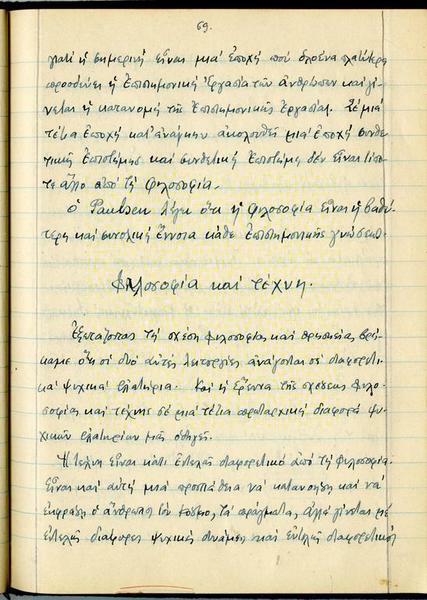 69.
γιατί ἡ σημερινή εἶναι μιά ἐποχή πού ὁλοένα πλατύτερη
προοδεύει ἡ ἐπιστημονική ἐργασία τῶν ἀνθρώπων καί γί-
νεται ἡ κατανομή τῆς ἐπιστημονικῆς ἐργασίας. Σέ μιά
τέτια ἐποχή κατ' ἀνάγκην ἀκολουθεῖ μιά ἐποχή συνθε-
τικῆς ἐπιστήμης καί συνθετική ἐπιστήμη δέν εἶναι τίπο-
τε ἄλλο ἀπό τή φιλοσοφία.
Ὁ Paulsen λέγει ὅτι ἡ φιλοσοφία εἶναι ἡ βαθύ-
τερη καί συνολική ἔννοια κάθε ἐπιστημονικῆς γνώσεως.
Φιλοσοφία καί τέχνη.
Ἐξετάζοντας τή σχέση φιλοσοφίας καί θρησκείας βρή-
καμε ὅτι οἱ δυό αὐτές λειτουργίες ἀνάγονται σέ διαφορετι-
κά ψυχικά ἐλατήρια. Καί ἡ ἔρευνα τῆς σχέσεως φιλο-
σοφίας καί τέχνης σέ μιά τέτια πρωταρχική διαφορά ψυ-
χικῶν ἐλατηρίων μᾶς ὁδηγεῖ.
Ἡ τέχνη εἶναι κάτι ἐντελῶς διαφορετικό ἀπό τή φιλοσοφία.
Εἶναι καί αὐτή μιά προσπάθεια νά κατανοήση καί νά
ἐκφράση ὁ ἄνθρωπος τόν κόσμο, τά πράγματα, ἀλλά γίνεται μέ
ἐντελῶς διάφορες ψυχικές δυνάμεις καί ἐντελῶς διαφορετικός